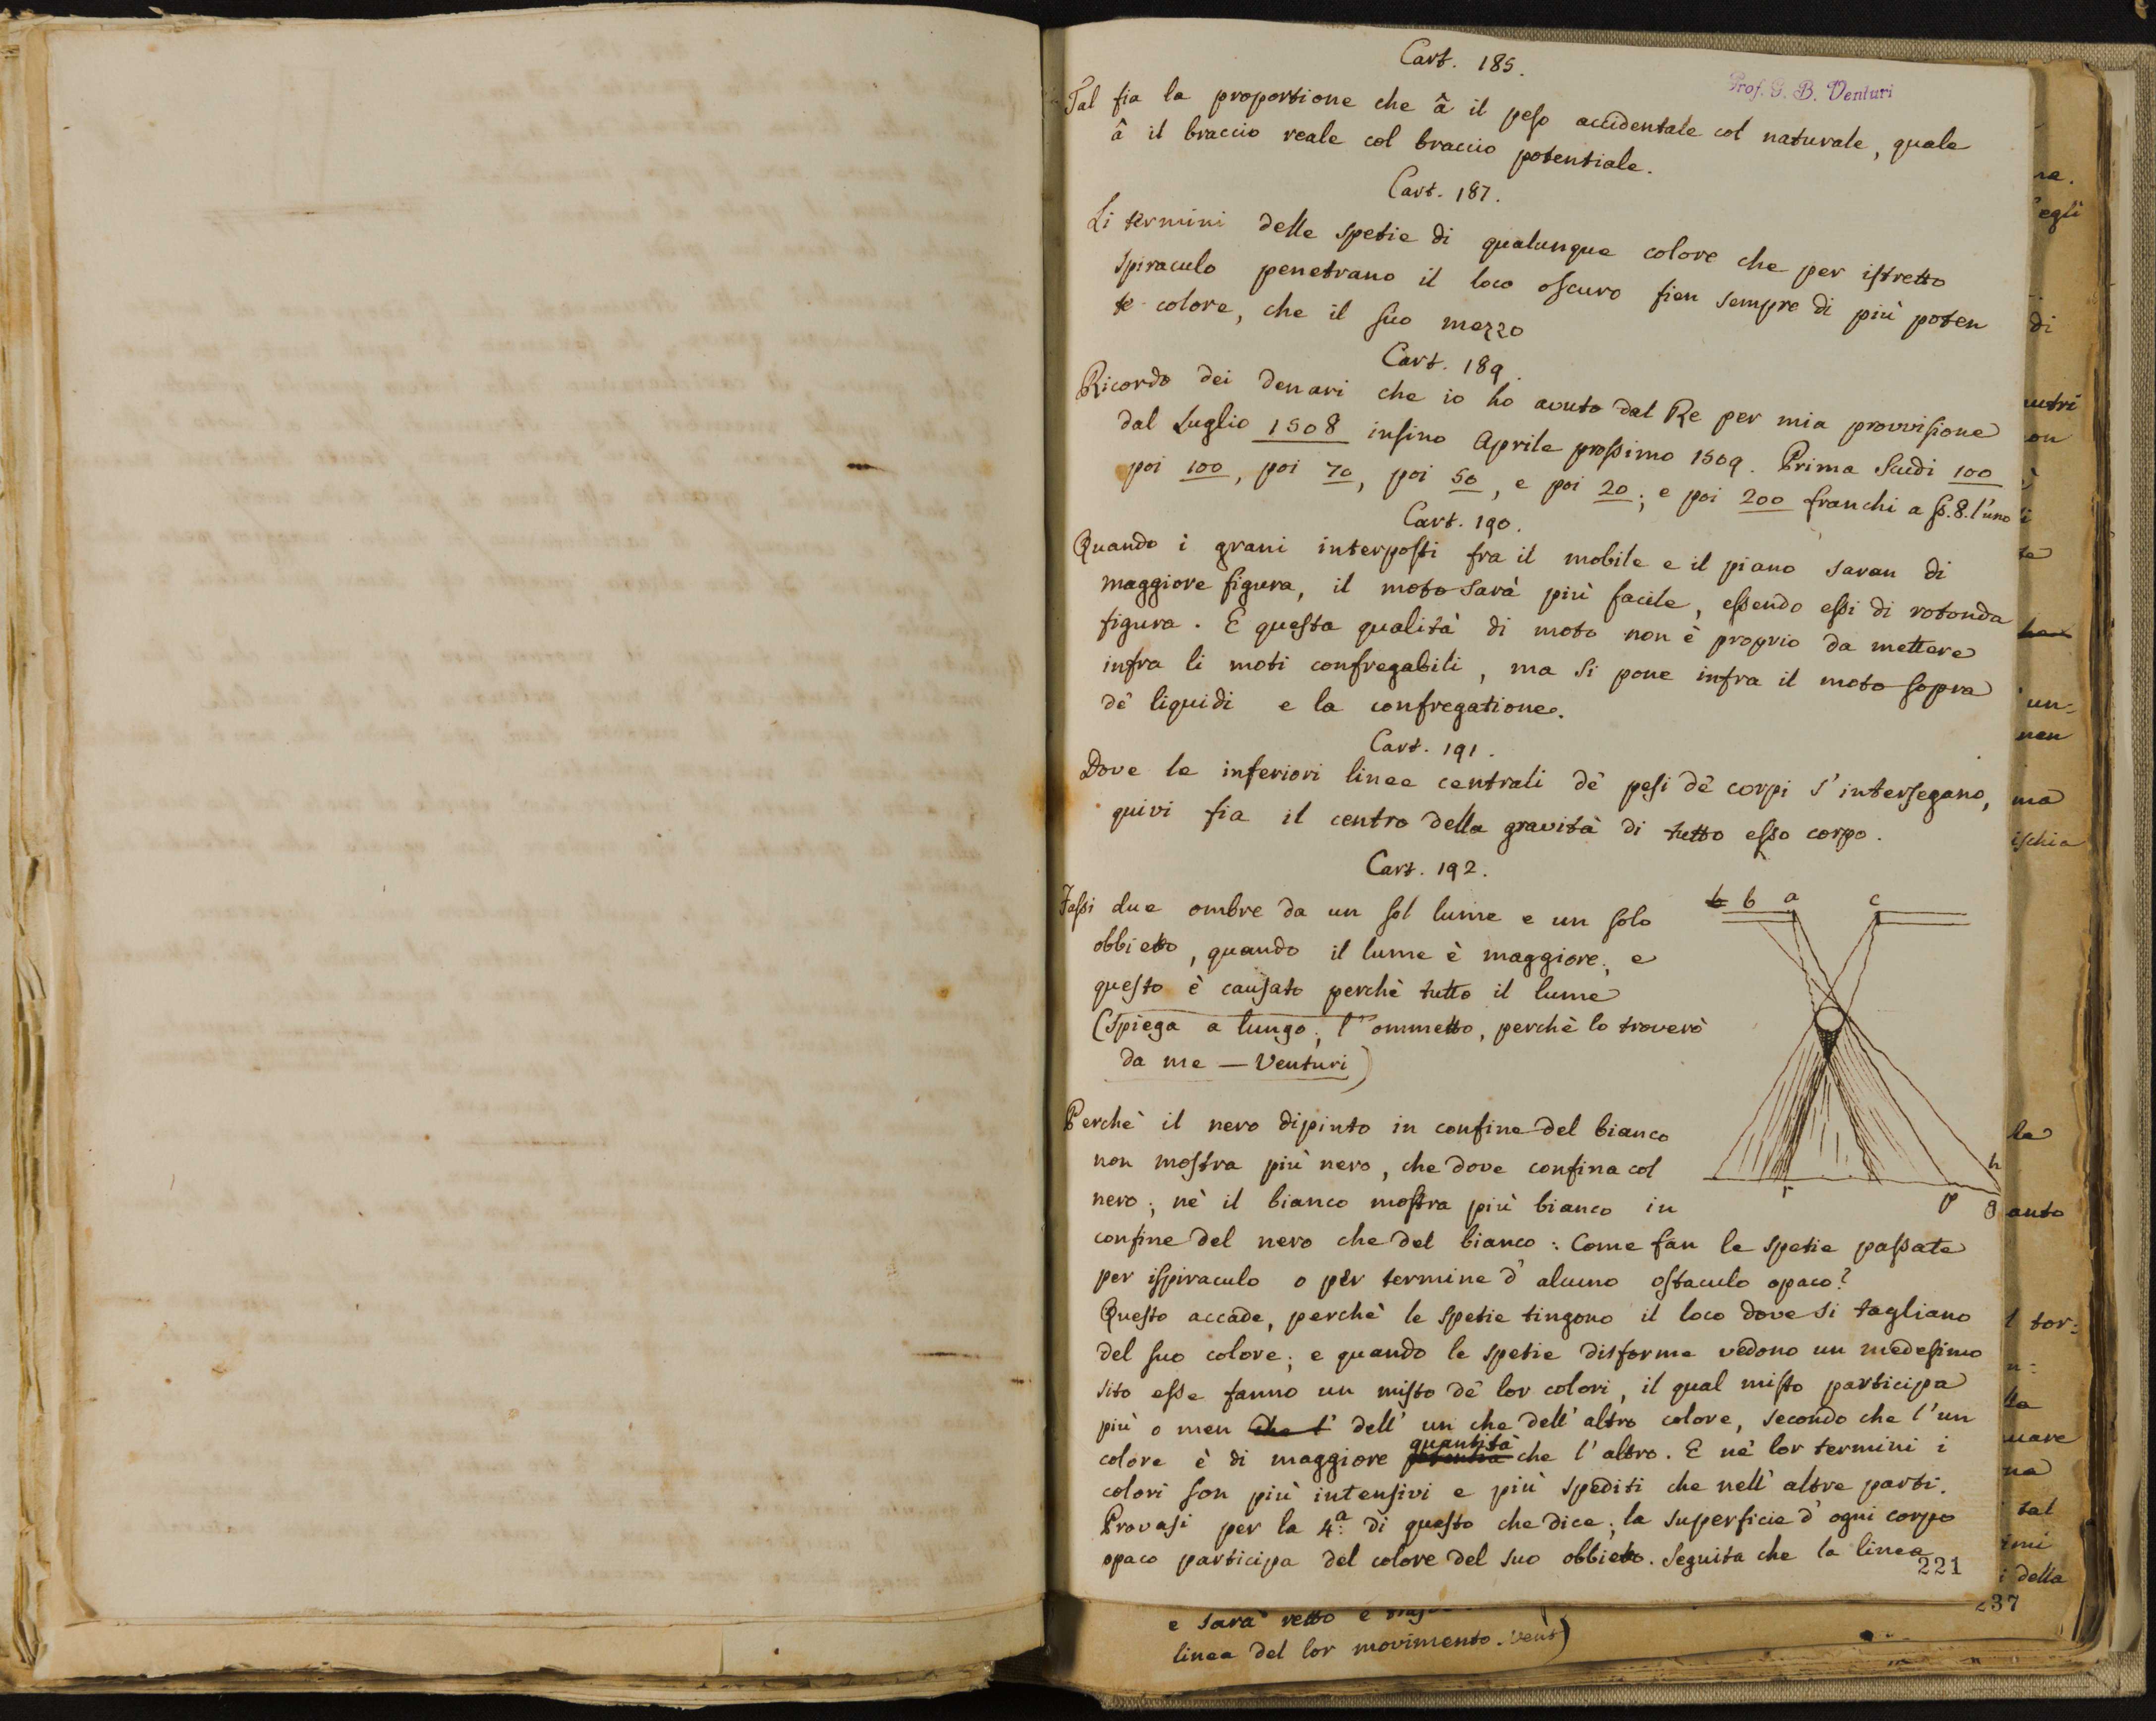 Cart. 185.
Prof. G. B. Venturi
Tal fia la proportione che â il peso accidentale col naturale, quale
â il braccio reale col braccio potentiale.
Cart. 187.
Li termini delle spetie di qualunque colore che per istretto
spiraculo penetrano il loco oscuro fien sempre di più poten
te colore, che il suo mezzo
Cart. 189.
Ricordo dei denari che io ho avuto dal Re per mia provvisione
dal Luglio 1508 insino Aprile prossimo 1509. Prima Scudi 100
poi 100, poi 70, poi 50, e poi 20; e poi 200 franchi a ß. 8. l'uno
Cart. 190.
Quando i grani interposti fra il mobile e il piano saran di
maggiore figura, il moto sarà più facile, essendo essi di rotonda
figura. E questa qualità di moto non è proprio da mettere
infra li moti confregabili, ma si pone infra il moto sopra
dè liquidi e la confregatione.
Cart. 191.
Dove le inferiori linee centrali dè pesi dè corpi s'intersegano,
quivi fia il centro della gravità di tutto esso corpo.
Cart. 192.
Fassi due ombre da un sol lume e un solo
obbietto, quando il lume è maggiore; e
questo è causato perchè tutto il lume
(Spiega a lungo; l'ommetto, perchè lo troverò
da me — Venturi)
b b a c
r p g
h
Perchè il nero dipinto in confine del bianco
non mostra più nero, che dove confina col
nero; nè il bianco mostra più bianco in
confine del nero che del bianco: Come fan le spetie passate
per ispiraculo o per termine d'alcuno ostaculo opaco?
Questo accade, perchè le spetie tingono il loco dove si tagliano
del suo colore; e quando le spetie disforme vedono un medesimo
sito esse fanno un misto dè lor colori, il qual misto participa
più o men che l' dell' un che dell' altro colore, secondo che l'un
quantità
colore è di maggiore potentia che l'altro. E nè lor termini i
colori son più intensivi e più spediti che nell' altre parti.
Provasi per la 4.a di questo che dice; la superficie d'ogni corpo
opaco participa del colore del suo obbietto. Seguita che la linea
221
e sarà retto e
linea del lor movimento. Vent)
237
egli
di
on
te
un=
nen
ma
ischia
la
anto
l tor:
n:
ta
uare
na
tal
imi
i della